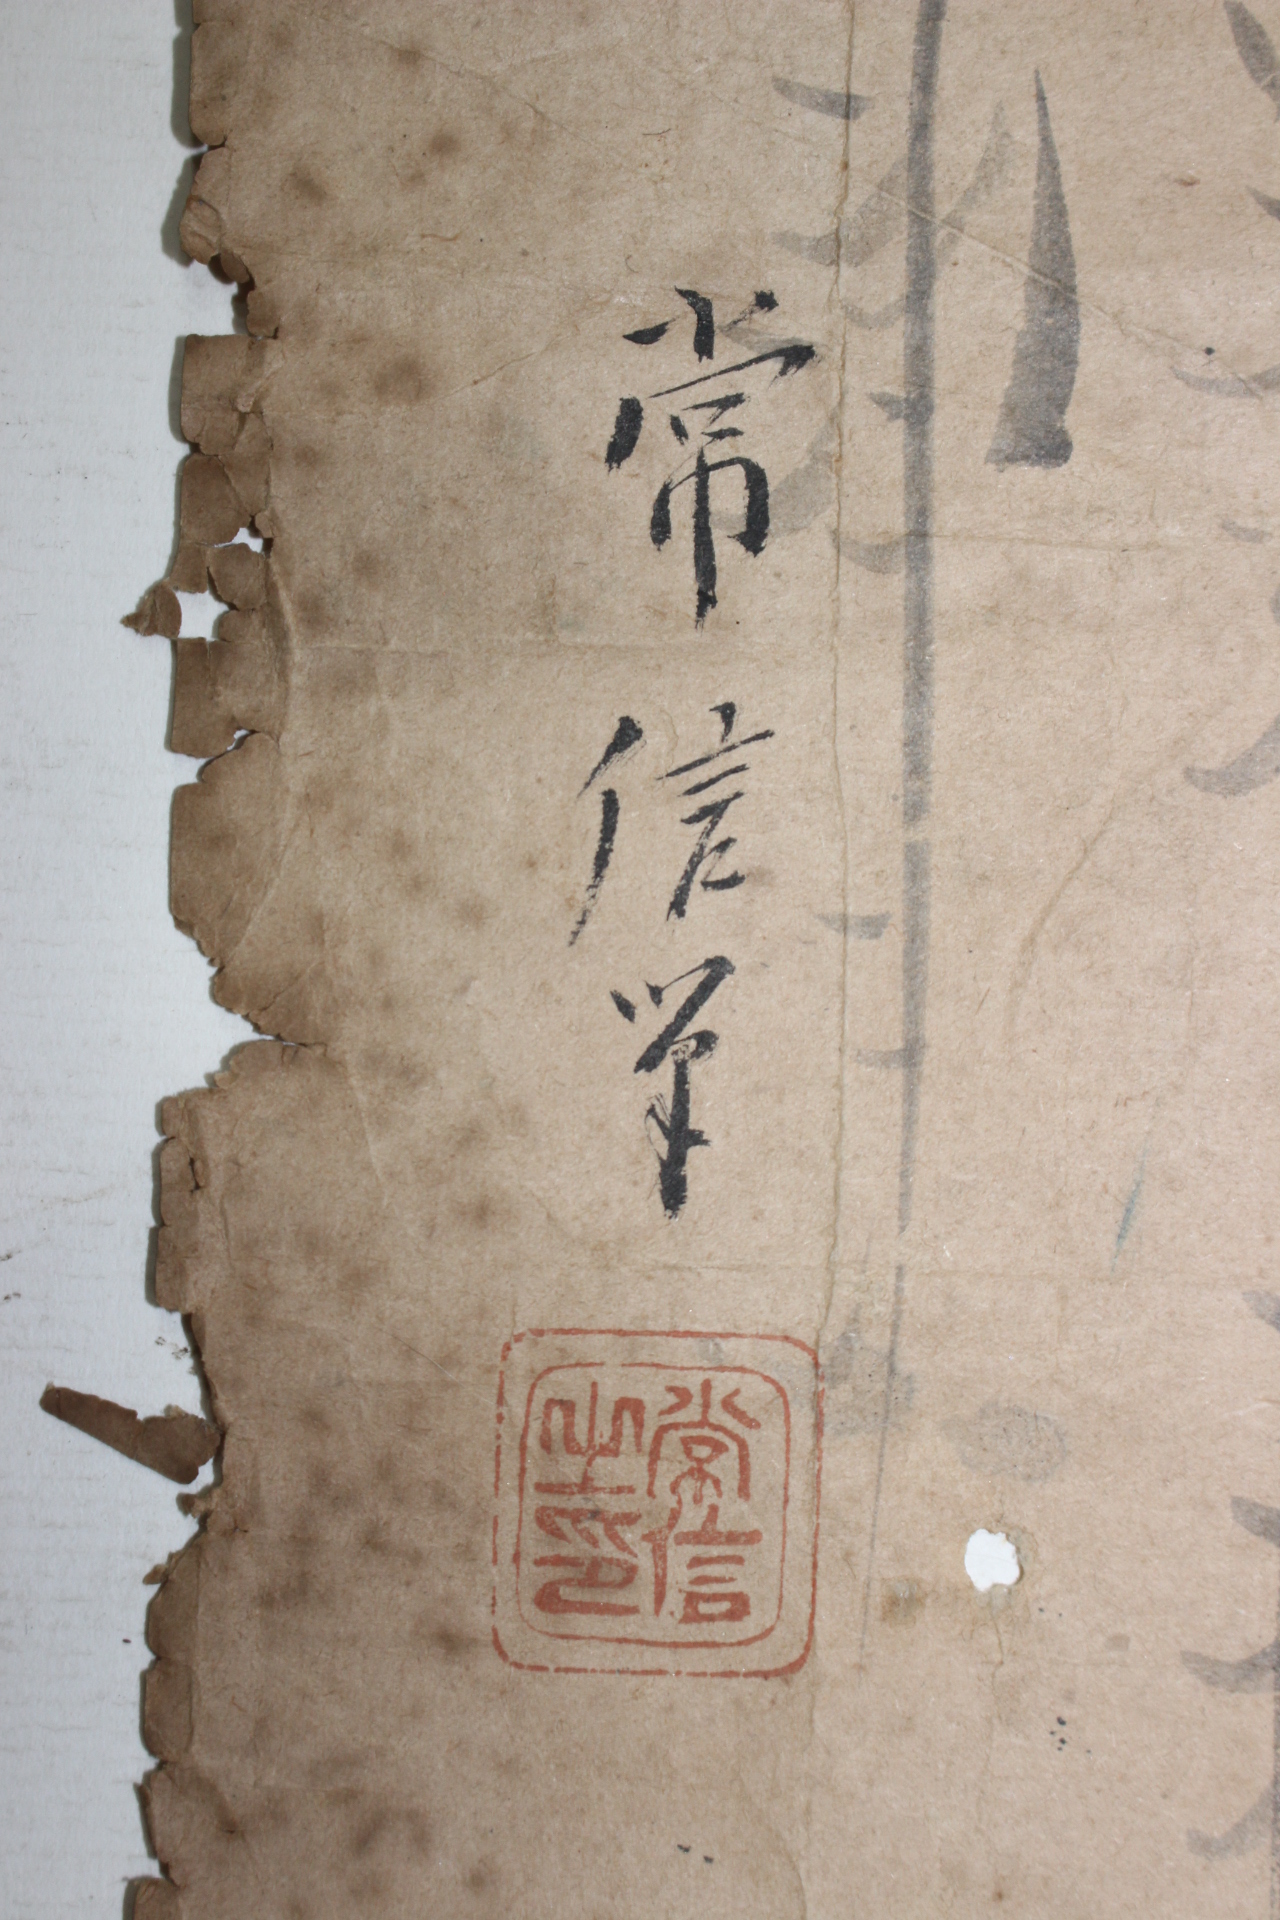 常信筆
常信
之印